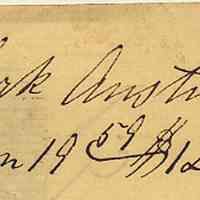 ork Austi
n 19 59 $12